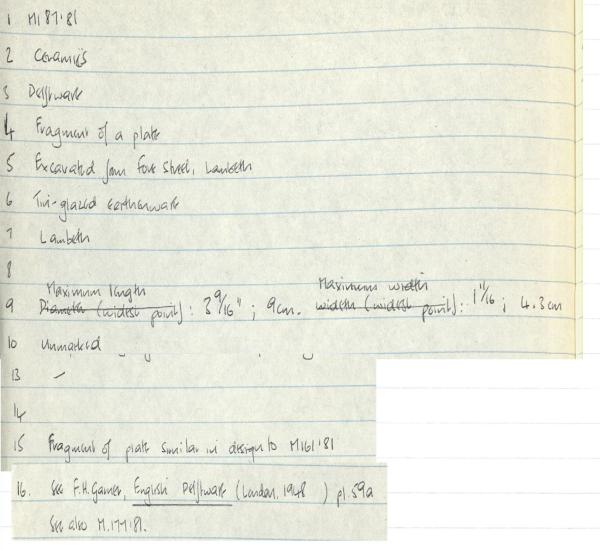 1 M187.81
2 Ceramics
3 Delftware
4 Fragment of a plate
5 Excavated from Fore Street, Lambeth
6 Tin-glazed earthenware
7 Lambeth
8
Maximum length Maximum width
9 Diameter (widest point): 3 9/16"; 9cm. width (widest point): 1 11/16; 4.3cm
10 Unmarked
13 –
14
15 Fragment of plate similar in design to M161.81
16. See F.H. Garner, English Delftware (London, 1948 ) pl. 59a
See also M.177.81.